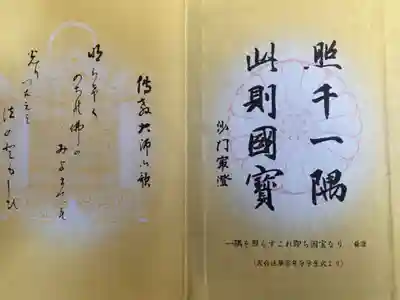 照千一隅
此則國寶
沙門最澄
一隅を照らすこれ即ち国宝なり 最澄
(天台法華宗年分学生式より)
傳教大師御歌
明らけく
のちの佛の
みよまでも
光り
つたへよ
法のともしび